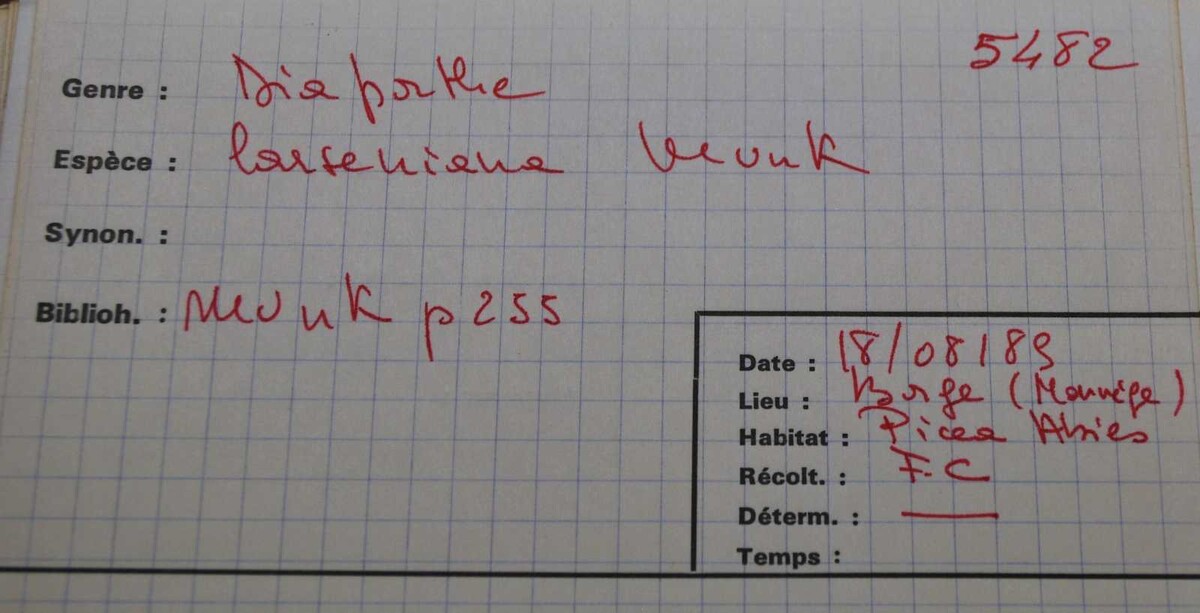 5482
Genre : Diaporthe
Espèce : larseniana Munk
Synon. :
Biblioh. : Munk p 255
Date : 18/08/89
Lieu : Borge (Norvège)
Habitat : Picea Abies
Récolt. : F.C
Déterm. : —
Temps :